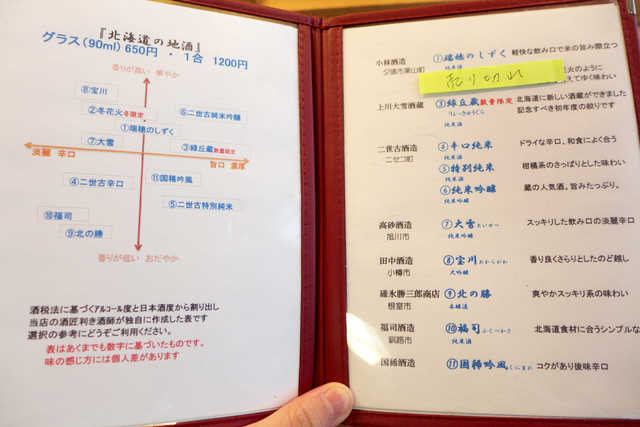 『北海道の地酒』
グラス(90ml) 650円 ・ 1合 1200円
香りが高い 華やか
⑧宝川
②冬花火冬限定
⑥二世古純米吟醸
①瑞穂のしずく
⑦大雪
③緑丘蔵数量限定
淡麗 辛口
旨口 濃厚
④二世古辛口
⑪国稀吟風
⑤二世古特別純米
⑩福司
⑨北の勝
香りが低い おだやか
酒税法に基づくアルコール度と日本酒度から割り出し
当店の酒匠利き酒師が独自に作成した表です
選択の参考にどうぞご利用ください。
表はあくまでも数字に基づいたものです。
味の感じ方には個人差があります
小林酒造 ①瑞穂のしずく 軽快な飲み口で米の旨み際立つ
夕張市栗山町 純米酒
売り切れ
花火のように
えてゆく味わい
上川大雪酒蔵 ③緑丘蔵数量限定 北海道に新しい酒蔵ができました
りょっきゅうぐら 記念すべき初年度の絞りです
純米酒
二世古酒造 ④辛口純米 ドライな辛口、和食によく合う
ニセコ町 純米酒
⑤特別純米 柑橘系のさっぱりとした味わい
純米酒
⑥純米吟醸 蔵の人気酒。旨みたっぷり。
純米吟醸
高砂酒造 ⑦大雪たいせつ スッキリした飲み口の淡麗辛口
旭川市 純米吟醸
田中酒造 ⑧宝川たからがわ 香り良くさらりとしたのど越し
小樽市 大吟醸
碓氷勝三郎商店 ⑨北の勝 爽やかスッキリ系の味わい
根室市 本醸造
福司酒造 ⑩福司ふくつかさ 北海道食材に合うシンプルな
釧路市 純米酒
国稀酒造 ⑪国稀吟風くにまれ コクがあり後味辛口